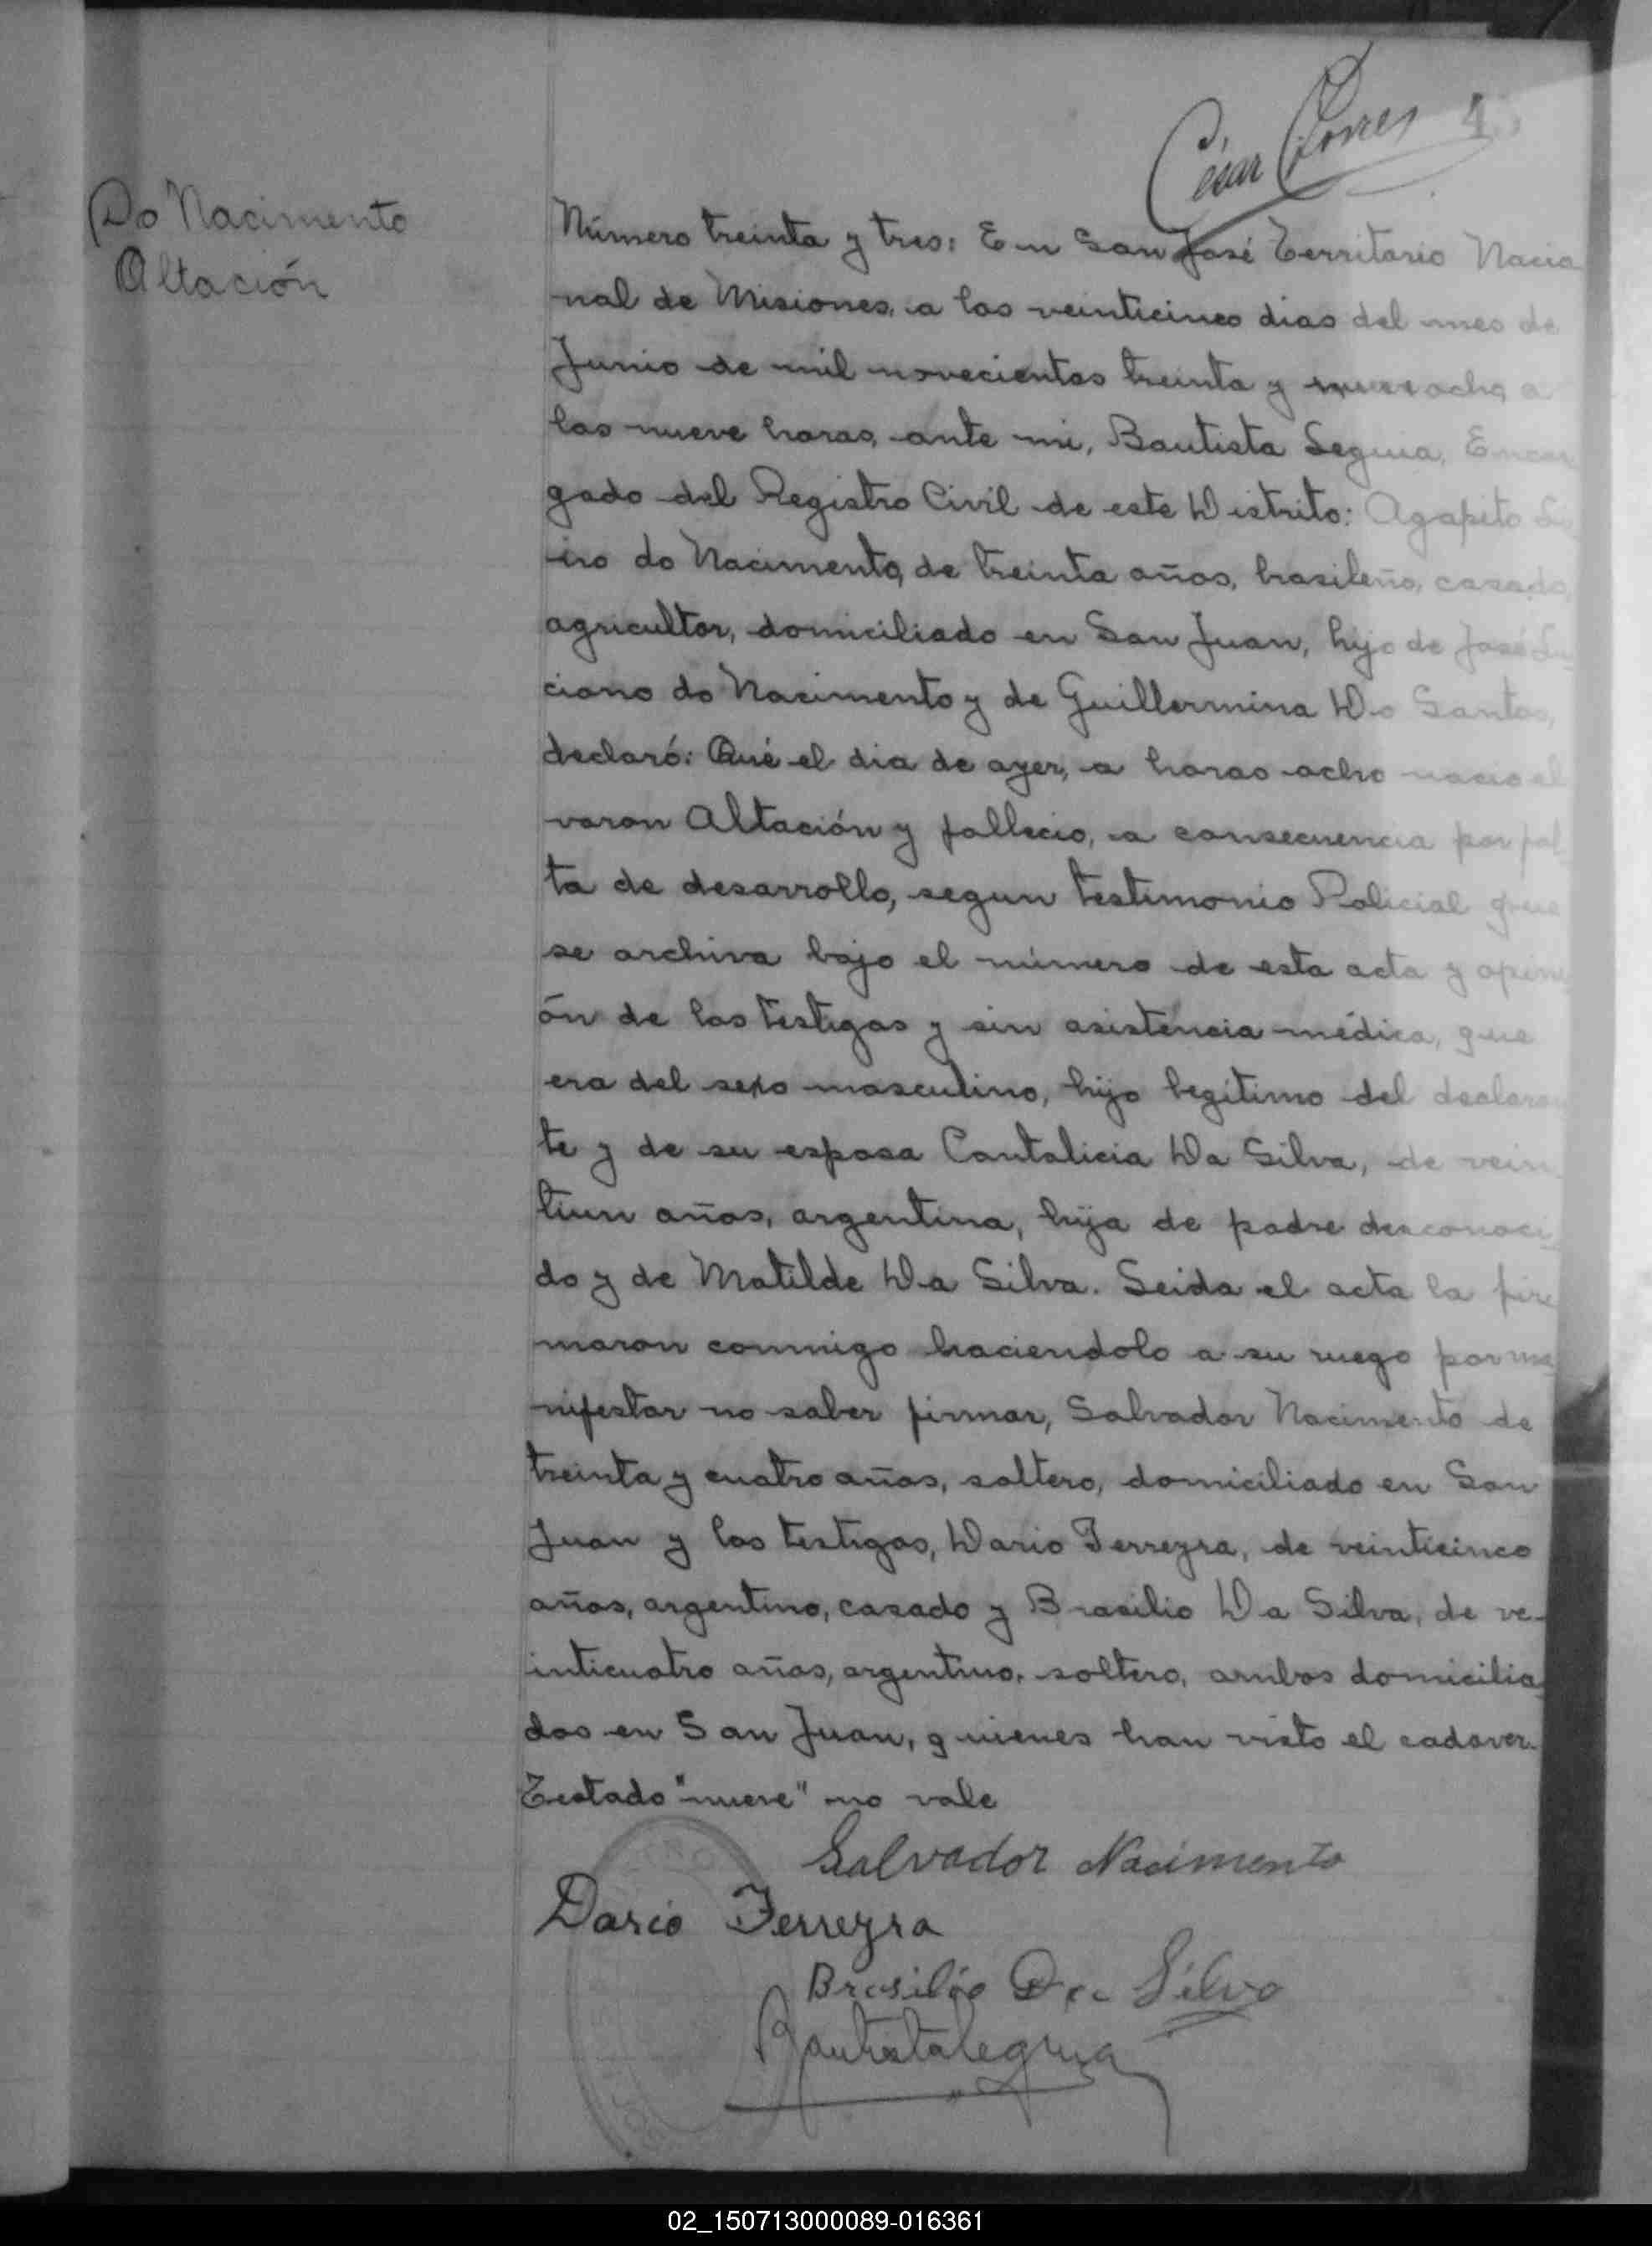 César Torres
Do Nacimento
Altación
Número treinta y tres: En San José Territorio Nacio
nal de Misiones, a los veinticinco dias del mes de
Junio de mil novecientos treinta y nueve ocho, a
las nueve horas, ante mi, Bautista Legua, Encar
gado del Registro Civil de este Distrito: Agapito
iro do Nacimento, de treinta años, brasileño, casado,
agricultor, domiciliado en San Juan, hijo de José Lu
ciano do Nacimento y de Guillermina Do Santos,
declaró: Qué el dia de ayer, a horas ocho nacio el
varon Altación y fallecio, a consecuencia por fal
ta de desarrollo, segun testimonio Policial que
se archiva bajo el número de esta acta y opini
ón de los testigos y sin asistencia médica, que
era del sexo masculino, hijo legítimo del declaran
te y de su esposa Cantalicia Da Silva, de vein
tiun años, argentina, hija de padre desconoci
do y de Matilde Da Silva. Leida el acta la fir
maron conmigo haciendolo a su ruego por ma
nifestar no saber firmar, Salvador Nacimento de
treinta y cuatro años, soltero, domiciliado en San
Juan y los testigos, Dario Ferreyra, de veinticinco
años, argentino, casado y Brasilio Da Silva, de ve-
inticuatro años, argentino, soltero, ambos domicilia
dos en San Juan, quienes han visto el cadaver.
Testado "nueve" no vale
Salvador Nacimento
Dario Ferreyra
Brasilio Da Silva
Bautista Legua
02_150713000089-016361